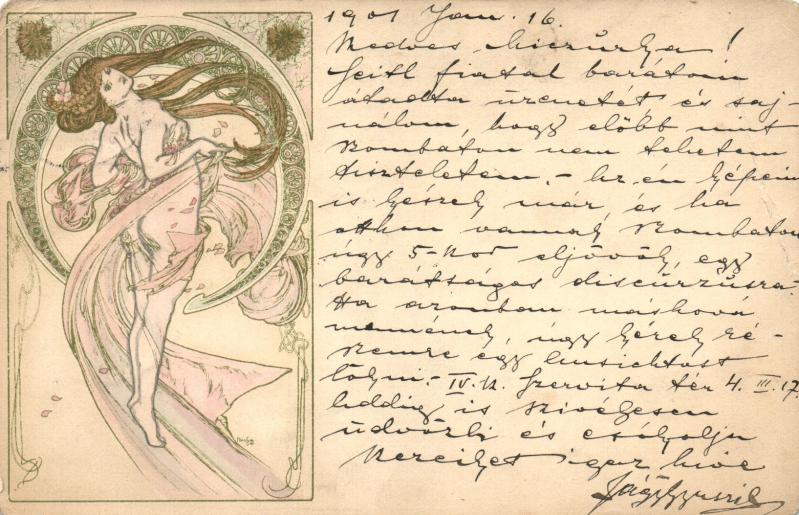 1901 Jan. 16.
Kedves
Seitl fiatal barátom
átadta üzenetét és saj-
nálom, hogy előbb mint
szombaton nem tehetem
tiszteletem. - Az én
is készek már, és ha
otthon vannak szombaton
úgy 5-kor eljövök, egy
barátságos discúrzusra.
Ha azonban máshová
mennének, úgy kérek ré-
szemre egy
tölteni. - IV. k. Szervita tér 4. III. 17.
Addig is szivélyesen
üdvözli és csókolja
kezeiket igaz híve